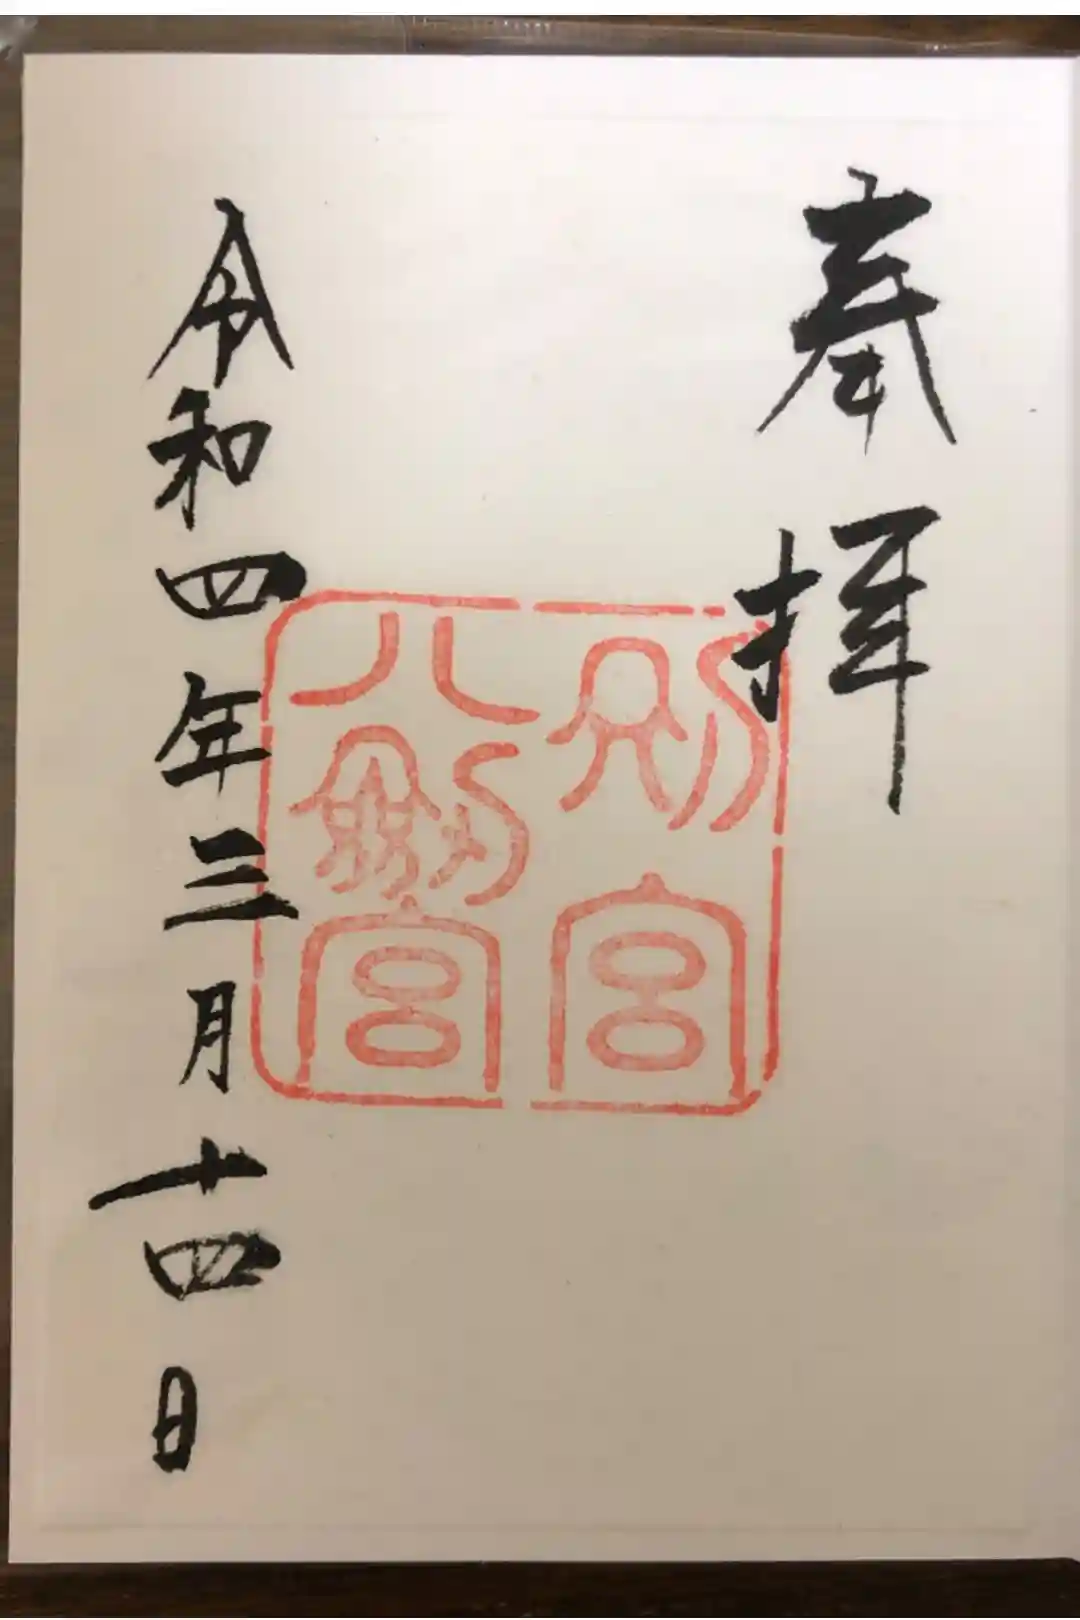 奉拝
別宮
八劔宮
令和四年三月十四日